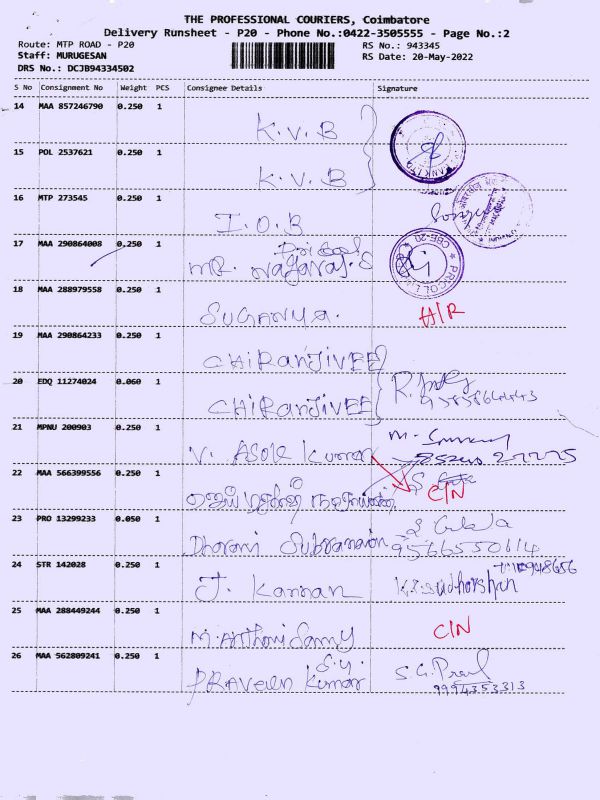 THE PROFESSIONAL COURIERS, Coimbatore
Delivery Runsheet - P20 - Phone No.:0422-3505555 - Page No.:2
Route: MTP ROAD - P20
RS No.: 943345
Staff: MURUGESAN
RS Date: 20-May-2022
DRS No.: DCJB94334502
S No Consignment No Weight PCS Consignee Details Signature
14 MAA 857246790 0.250 1
K.V.B
15 POL 2537621 0.250 1
K.V.B
16 MTP 273545 0.250 1
I.O.B
17 MAA 290864008 0.250 1
MR. Nagaraj.S
CBE-20
PRICOL
18 MAA 288979558 0.250 1
SUGANYA.
H/R
19 MAA 290864233 0.250 1
CHIRANJIVEE
20 EDQ 11274024 0.060 1
CHIRANJIVEE
21 MPNU 200903 0.250 1
V. ASOK Kumar
22 MAA 566399556 0.250 1
C/N
23 PRO 13299233 0.050 1
Dharani
9566550614
24 STR 142028 0.250 1
J. Kannan
K.S.Sudharshan
25 MAA 288449244 0.250 1
M. Anthoni Samy
C/N
26 MAA 562809241 0.250 1
PRAVEEN Kumar
9994353313